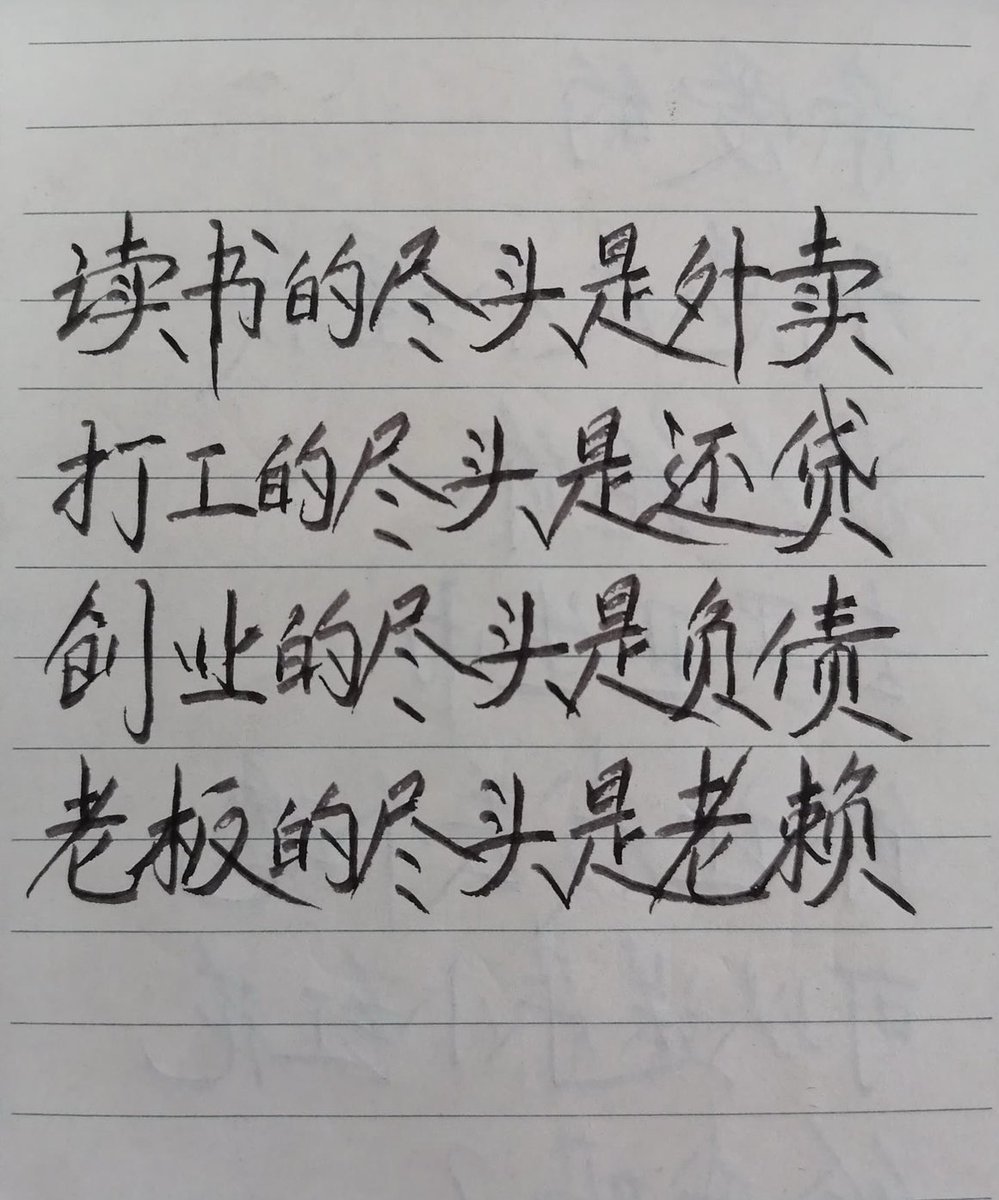 读书的尽头是外卖
打工的尽头是还贷
创业的尽头是负债
老板的尽头是老赖